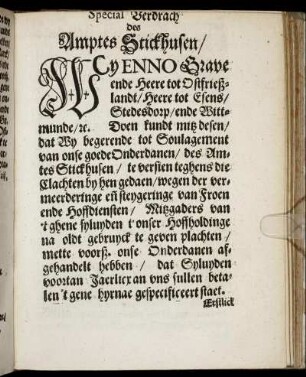 Special Verdrach
des
Amptes Stickhusen/
WY ENNO Grave
ende Heere tot Ostfrieß-
landt/Heere tot Esens/
Stedesdorp/ende Witt-
munde/ꝛc. Doen kundt mitz desen/
dat Wy begerende tot Soulagement
van onse goede Onderdanen/ des Am-
tes Stickhusen/ te versien teghens die
Clachten by hen gedaen/wegen der ver-
meerderinge eñ steygeringe van Froen
ende Hoffdiensten/ Mitzgaders van
't ghene sylunden t'onser Hoffholdinge
na oldt gebruyck te geven plachten/
mette voorß. onse Onderdanen af-
gehandelt hebben/ dat Syluyden
voortan Jaerlicx an vns sullen beta-
len 't gene hyrnae gespecificeert staet.
Erstlick